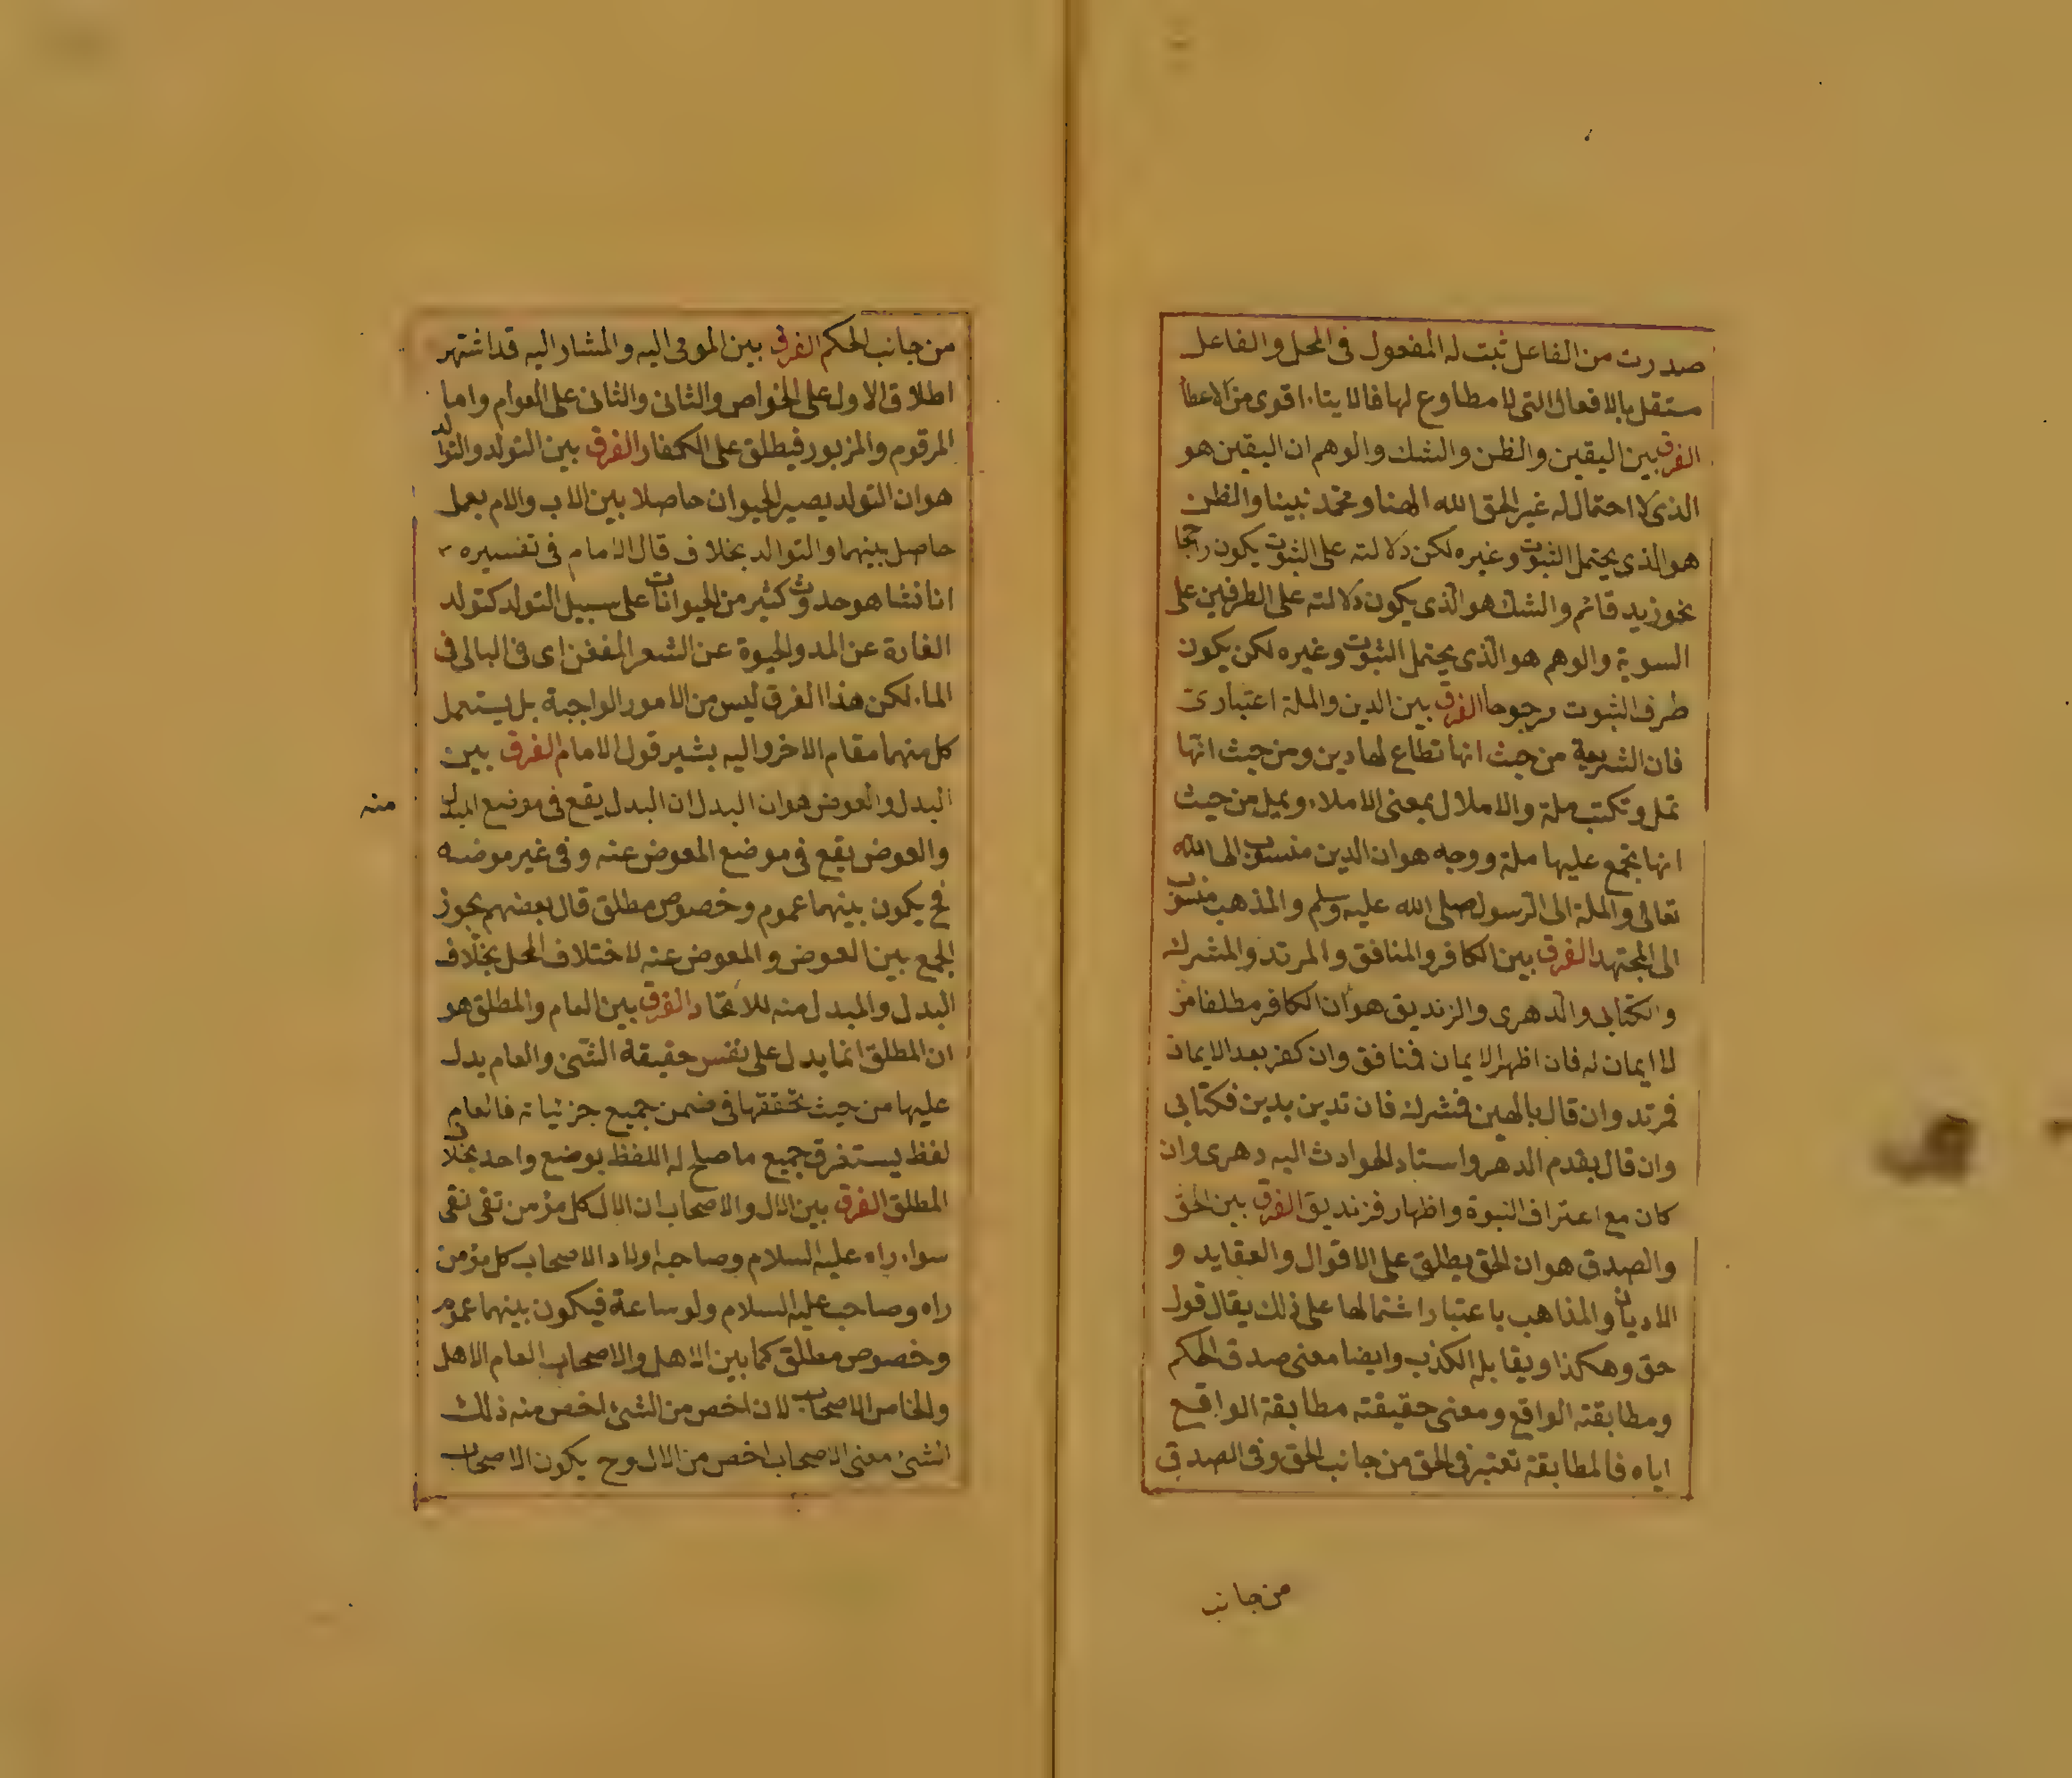 صدرت من الفاعل ثبت له المفعول فى المحل والفاعل
مستقل بالافعال التى لا مطاوع لها فالايتاء اقوى من الاعطا
الفرق بين اليقين والظن والشك والوهم ان اليقين هو
الذى لا احتمال له غير الحق الله الهنا ومحمد نبينا والظن
هو الذى يحتمل الثبوت وغيره لكن دلالته على الثبوت يكون راجحا
نحو زيد قائم والشك هو الذى يكون دلالته على الطرفين على
السوية والوهم هو الذى يحتمل الثبوت وغيره لكن يكون
طرف الثبوت مرجوحا الفرق بين الدين والملة اعتبارى
فان الشريعة من حيث انها تطاع لها دين ومن حيث انها
تمل وتكتب ملة والاملال بمعنى الاملاء ويميل من حيث
انها يجمع عليها ملة ووجه هو ان الدين منسوب الى الله
تعالى والملة الى الرسول صلى الله عليه وسلم والمذهب منسوب
الى المجتهد الفرق بين الكافر والمنافق والمرتد والمشرك
والكتابى والدهرى والزنديق هو ان الكافر مطلقا من
لا ايمان له فان اظهر الايمان فمنافق وان كفر بعد الايمان
فمرتد وان قال بالهين فمشرك فان تدين بدين فكتابى
وان قال بقدم الدهر واستاد الحوادث اليه دهرى وان
كان مع اعتراف النبوة واظهار فزنديق الفرق بين الحق
والصدق هو ان الحق يطلق على الاقوال والعقايد و
الاديان والمذاهب باعتبار اشتمالها على ذلك يقال قول
حق وهكذا ويقابله الكذب وايضا معنى صدق الحكم
ومطابقته الواقع ومعنى حقيقته مطابقة الواقع
اياه فالمطابقة تعتبر فى الحق من جانب الحق وفى الصدق
من جانب
من جانب الحكم الفرق بين المومى اليه والمشار اليه قد اشتهر
اطلاق الاول على الخواص والثانى والثانى على العوام واما
المرقوم والمزبور فيطلق على الكفار الفرق بين التولد والتوالد
هو ان التولد يصير الحيوان حاصلا بين الاب والام بعمل
حاصل بينهما والتوالد بخلاف قال الامام فى تفسيره
انا نشاهد حدوث كثير من الحيوانات على سبيل التولد كتولد
الفارة عن المدر والحيوة عن الشعر المعفن اى فى البالى فى
الماء لكن هذا الفرق ليس من الامور الواجبة بل يستعمل
كل منهما مقام الاخر واليه يشير قول الامام الفرق بين
البدل والعوض هو ان البدل ان البدل يقع فى موضع المبدل
منه
والعوض يقع فى موضع المعوض عنه وفى غير موضعه
فح يكون بينهما عموم وخصوص مطلق قال بعضهم يجوز
الجمع بين العوض والمعوض عنه لاختلاف المحل بخلاف
البدل والمبدل منه للاتحاد الفرق بين العام والمطلق هو
ان المطلق انما يدل على نفس حقيقة الشئ والعام يدل
عليها من حيث تحققها فى ضمن جميع جزئياته فالعام
لفظ يستغرق جميع ما صلح له اللفظ بوضع واحد بخلاف
المطلق الفرق بين الال والاصحاب ان الال كل مؤمن تقى نقى
سواء راه عليه السلام وصاحبه اولا د الاصحاب كل مؤمن
راه وصاحب عليه السلام ولو ساعة فيكون بينهما عموم
وخصوص مطلق كما بين الاهل والاصحاب العام الاهل
والخاص الاصحاب لان اخص من الشئ اخص منه ذلك
الشئ معنى الاصحاب اخص من الال وح يكون الاصحاب